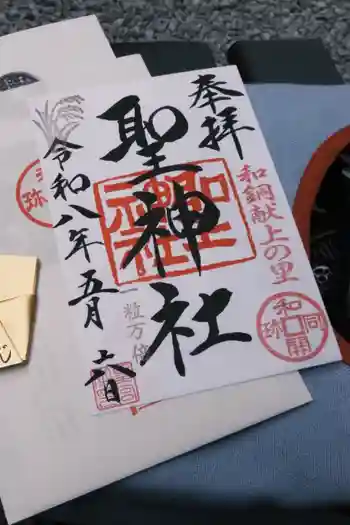 奉拝
和銅献上の里
聖神社
和同開珎
一粒万倍
令和八年五月六日